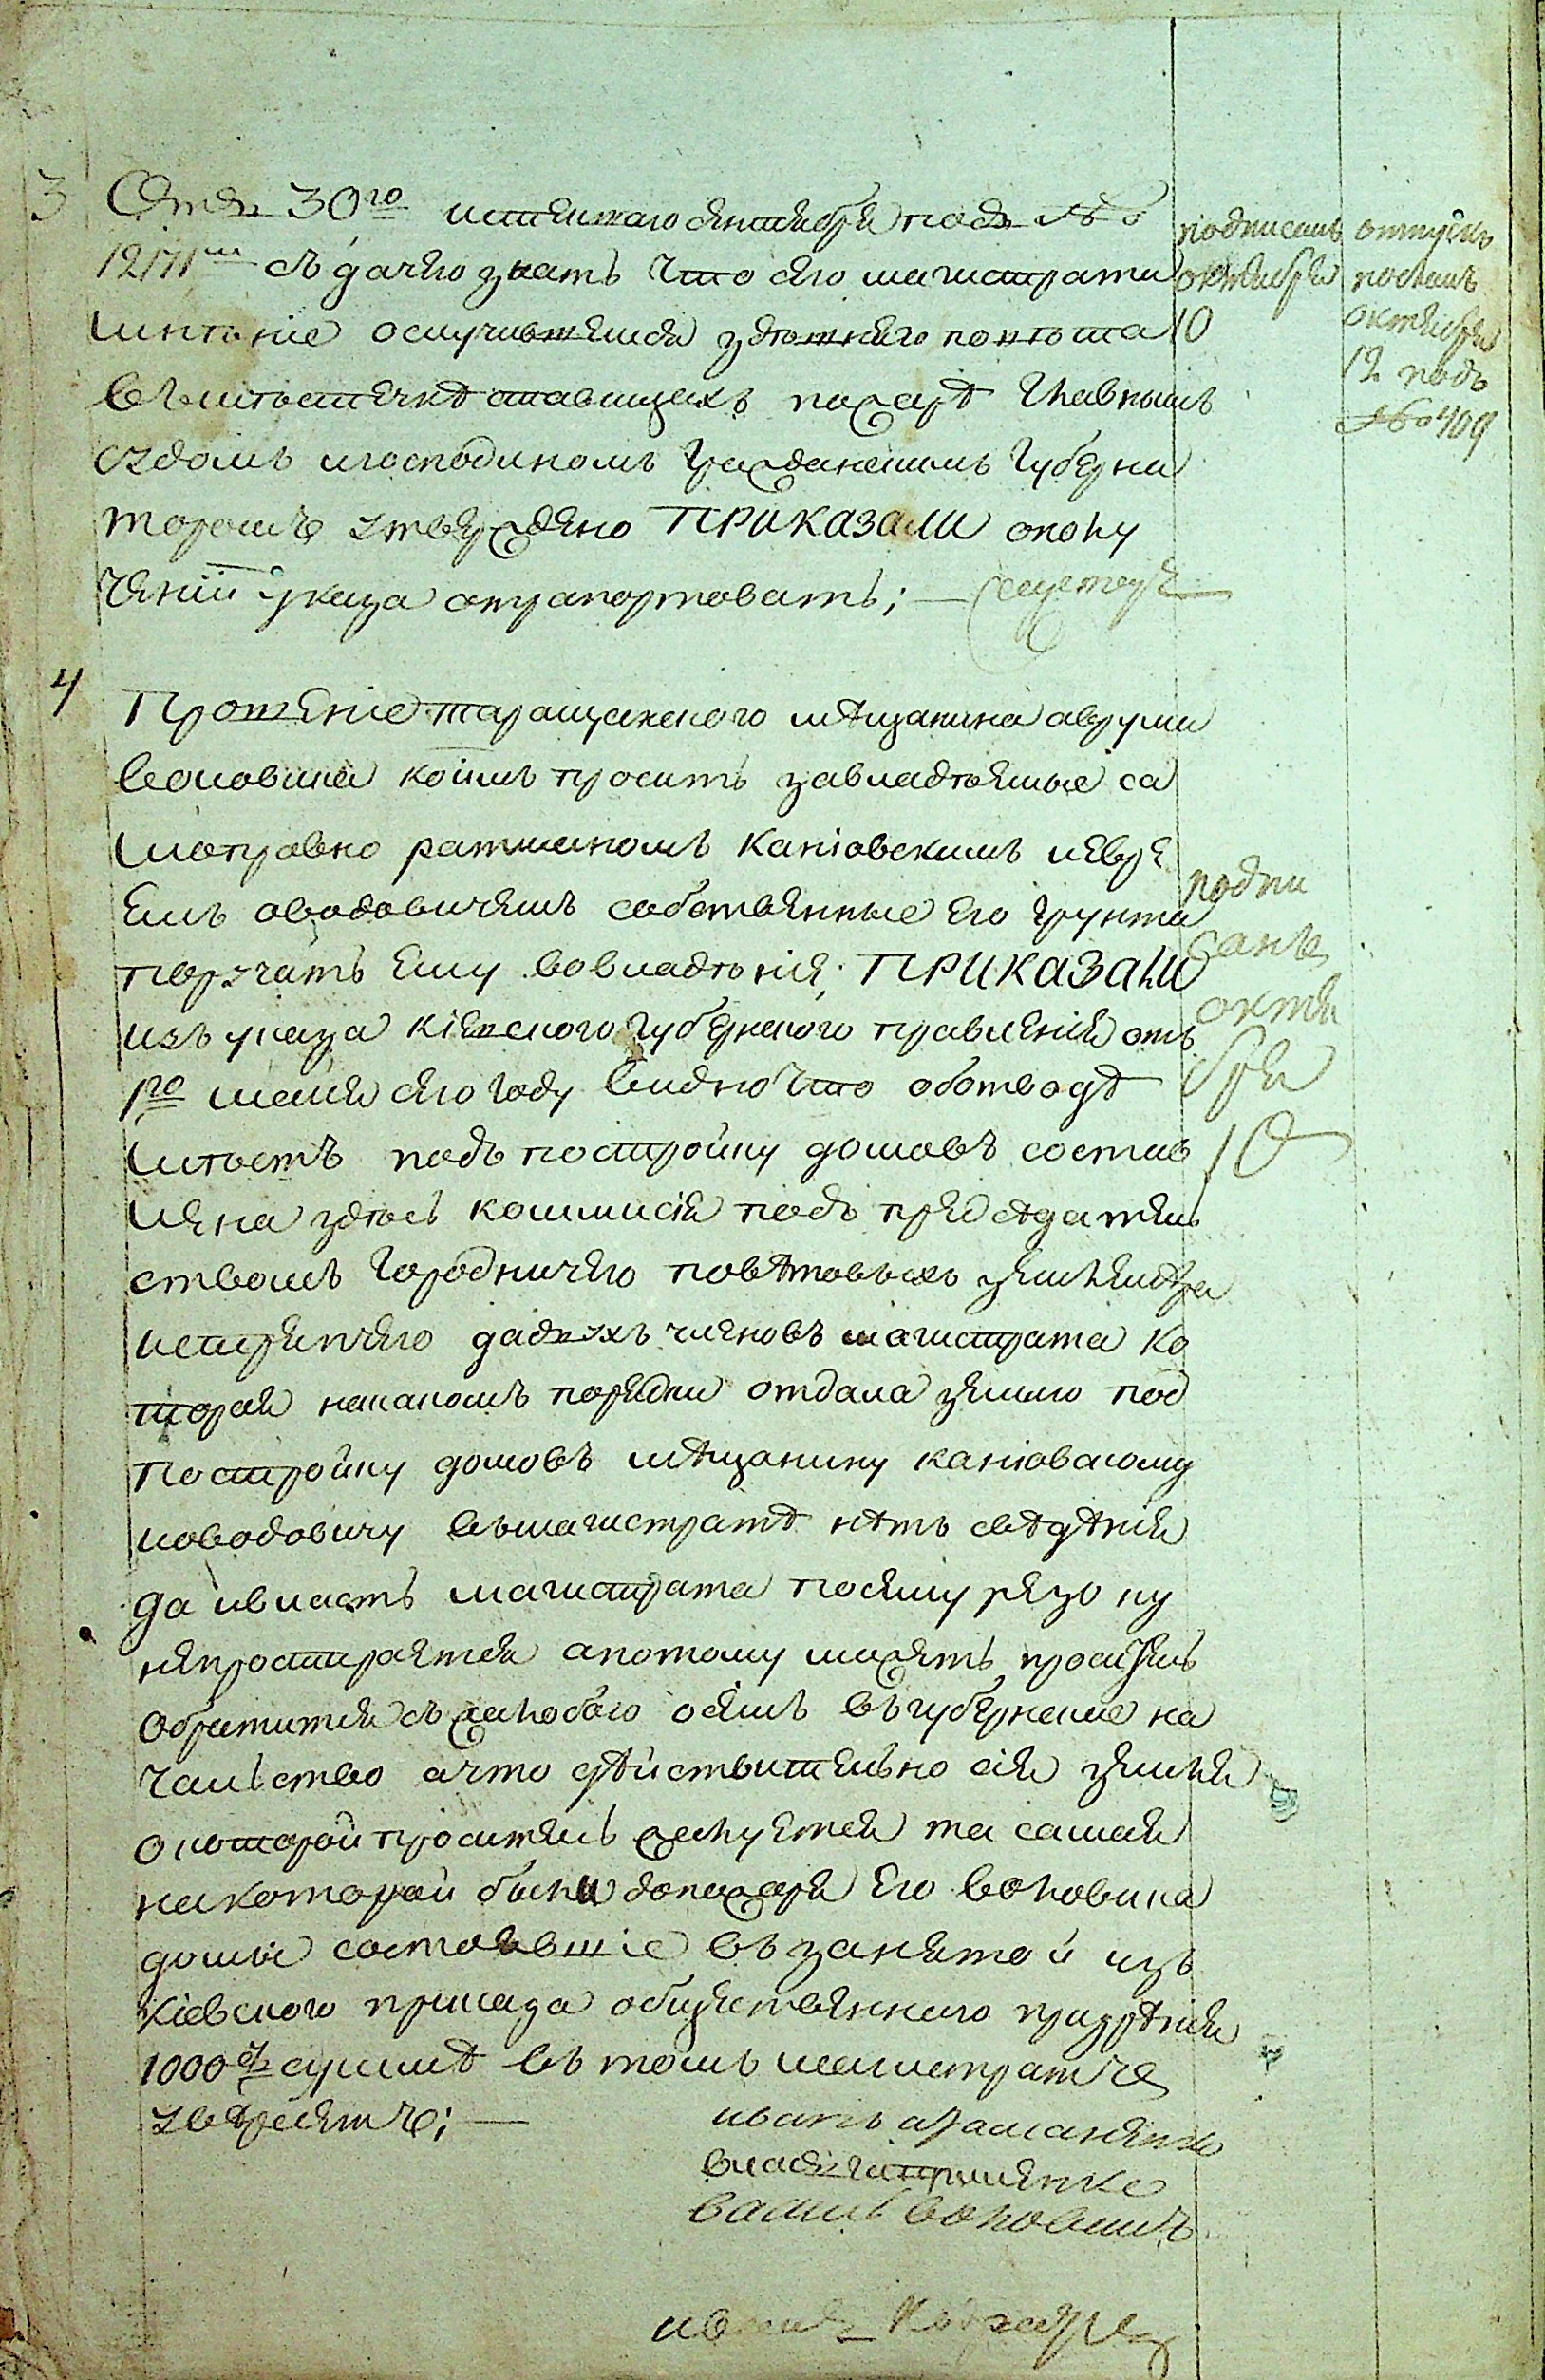 3 Отъ 30го истекшаго сентября подъ №о
12171мъ съ дачею знать что сего магистрата
мнѣніе ослучившемся здѣшняго повѣта
въ мѣстечкѣ ставищахъ пожарѣ Главнымъ
судомъ игосподиномъ Гражданскимъ Губерна
торомъ утверждено ПРИКАЗАЛИ ополу
ченіи указа отрапортовать; —
подписанъ
октября
10
отпускъ
посланъ
октября
12 подъ
№о 409
4 Прошеніе таращанского мѣщанина аврума
Воловика коимъ проситъ завладѣемые са
моправно ратманомъ Каніовскимъ иевре
емъ оводовичемъ собственные Его Грунта
поручить Ему вовладѣніе; ПРИКАЗАЛИ
изъ указа Кіевского Губернского правленія отъ
1го маія сего Году видно что оботводѣ
мѣстъ подъ постройку домовъ состав
лена здѣсь коммисія подъ предсѣдатель
ствомъ Городничего повѣтовыхъ землемѣра
истряпчего да двухъ членовъ магистрата ко
торая накакомъ порядки отдала землю под
постройку домовъ мѣщанину каніовскому
иоводовичу въмагистратѣ нѣтъ свѣдѣнія
да ивласть магистрата посему резону
непростирается апотому можетъ проситель
обратится съ жалобою осемъ въгубернское на
чальство ачто дѣйствительно сія земля
окоторой проситель жалуется та самая
накоторой были допожара Его Воловика
домы состоявшіе въ занятой изъ
Кіевского приказа общественного призрѣнія
1000 суммѣ въ томъ магистратъ
увѣряетъ; —
подпи
санъ
октя
бря
10
иванъ
власъ